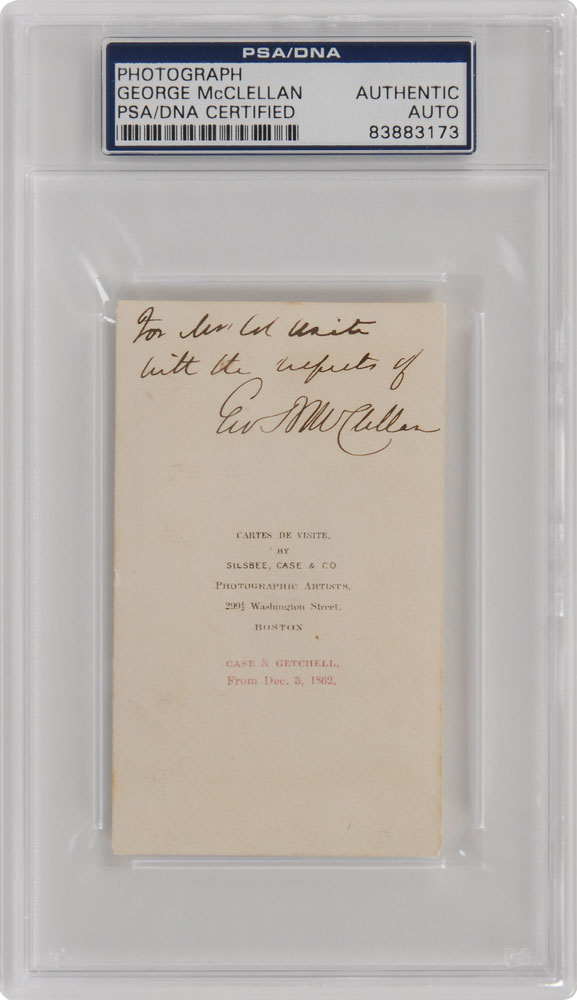 PSA/DNA
PHOTOGRAPH
GEORGE McCLELLAN AUTHENTIC
PSA/DNA CERTIFIED AUTO
83883173
For Col
with the respects of
Geo B McClellan
CARTES DE VISITE,
BY
SILSBEE, CASE & CO.
PHOTOGRAPHIC ARTISTS,
299½ Washington Street,
BOSTON
CASE & GETCHELL,
From Dec. 3, 1862.